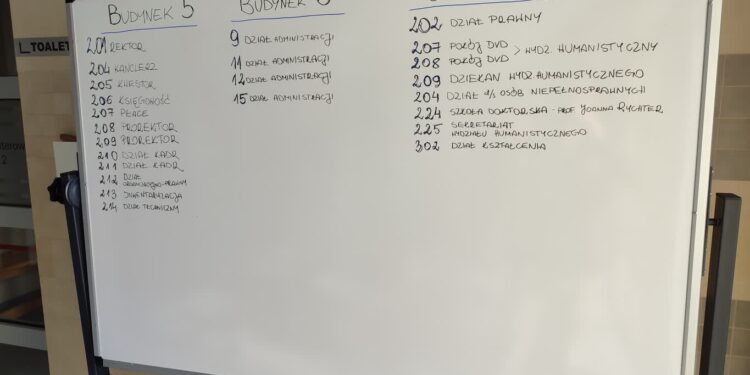 TOALET
BUDYNEK 5
201 REKTOR
204 KANCLERZ
205 KWESTOR
206 KSIĘGOWOŚĆ
207 PŁACE
208 PROREKTOR
209 PROREKTOR
210 DZIAŁ KADR
211 DZIAŁ KADR
212 DZIAŁ
ORGANIZACYJNO-PRAWNY
213 INWENTARYZACJA
214 DZIAŁ TECHNICZNY
BUDYNEK
9 DZIAŁ ADMINISTRACJI
11 DZIAŁ ADMINISTRACJI
12 DZIAŁ ADMINISTRACJI
15 DZIAŁ ADMINISTRACJI
202 DZIAŁ PRAWNY
207 POKÓJ DVD > WYDZ. HUMANISTYCZNY
208 POKÓJ DVD
209 DZIEKAN WYDZ. HUMANISTYCZNEGO
204 DZIAŁ d/s OSÓB NIEPEŁNOSPRAWNYCH
224 SZKOŁA DOKTORSKA - PROF JOANNA RYCHTER
225 SEKRETARIAT
WYDZIAŁU HUMANISTYCZNEGO
302 DZIAŁ KSZTAŁCENIA